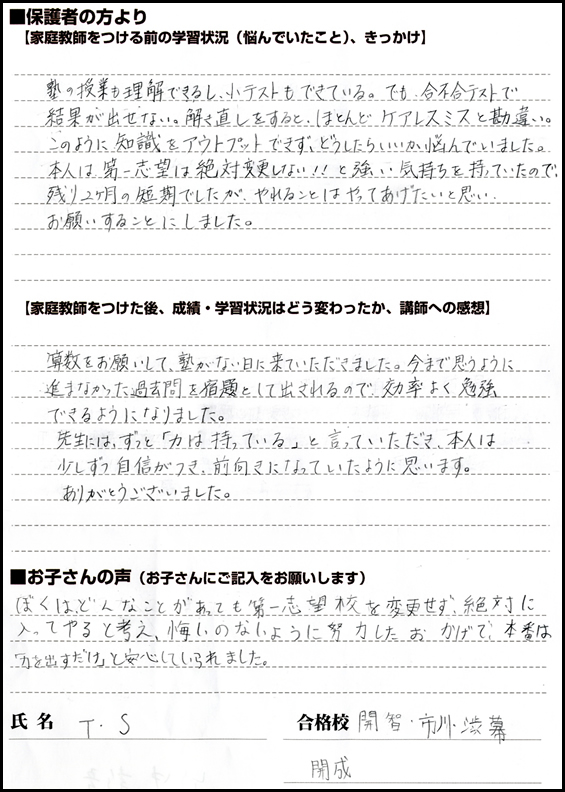 ■保護者の方より
【家庭教師をつける前の学習状況（悩んでいたこと）、きっかけ】
塾の授業も理解できるし、小テストもできている。でも、合不合テストで
結果が出せない。解き直しをすると、ほとんどケアレスミスと勘違い。
このように知識をアウトプットできず、どうしたらいいか悩んでいました。
本人は第一志望は絶対変更しない!!と強い気持ちを持っていたので、
残り2ヶ月の短期でしたが、やれることはやってあげたいと思い、
お願いすることにしました。
【家庭教師をつけた後、成績・学習状況はどう変わったか、講師への感想】
算数をお願いして、塾がない日に来ていただきました。今まで思うように
進まなかった過去問を宿題として出されるので、効率よく勉強
できるようになりました。
先生には、ずっと「力は持っている」と言っていただき、本人は
少しずつ自信がつき、前向きになっていたように思います。
ありがとうございました。
■お子さんの声（お子さんにご記入をお願いします）
ぼくは、どんなことがあっても第一志望校を変更せず、絶対に
入ってやると考え、悔いのないように努力したおかげで、本番は
「力を出すだけ」と安心していられました。
氏名 T.S 合格校 開智・市川・渋幕
開成